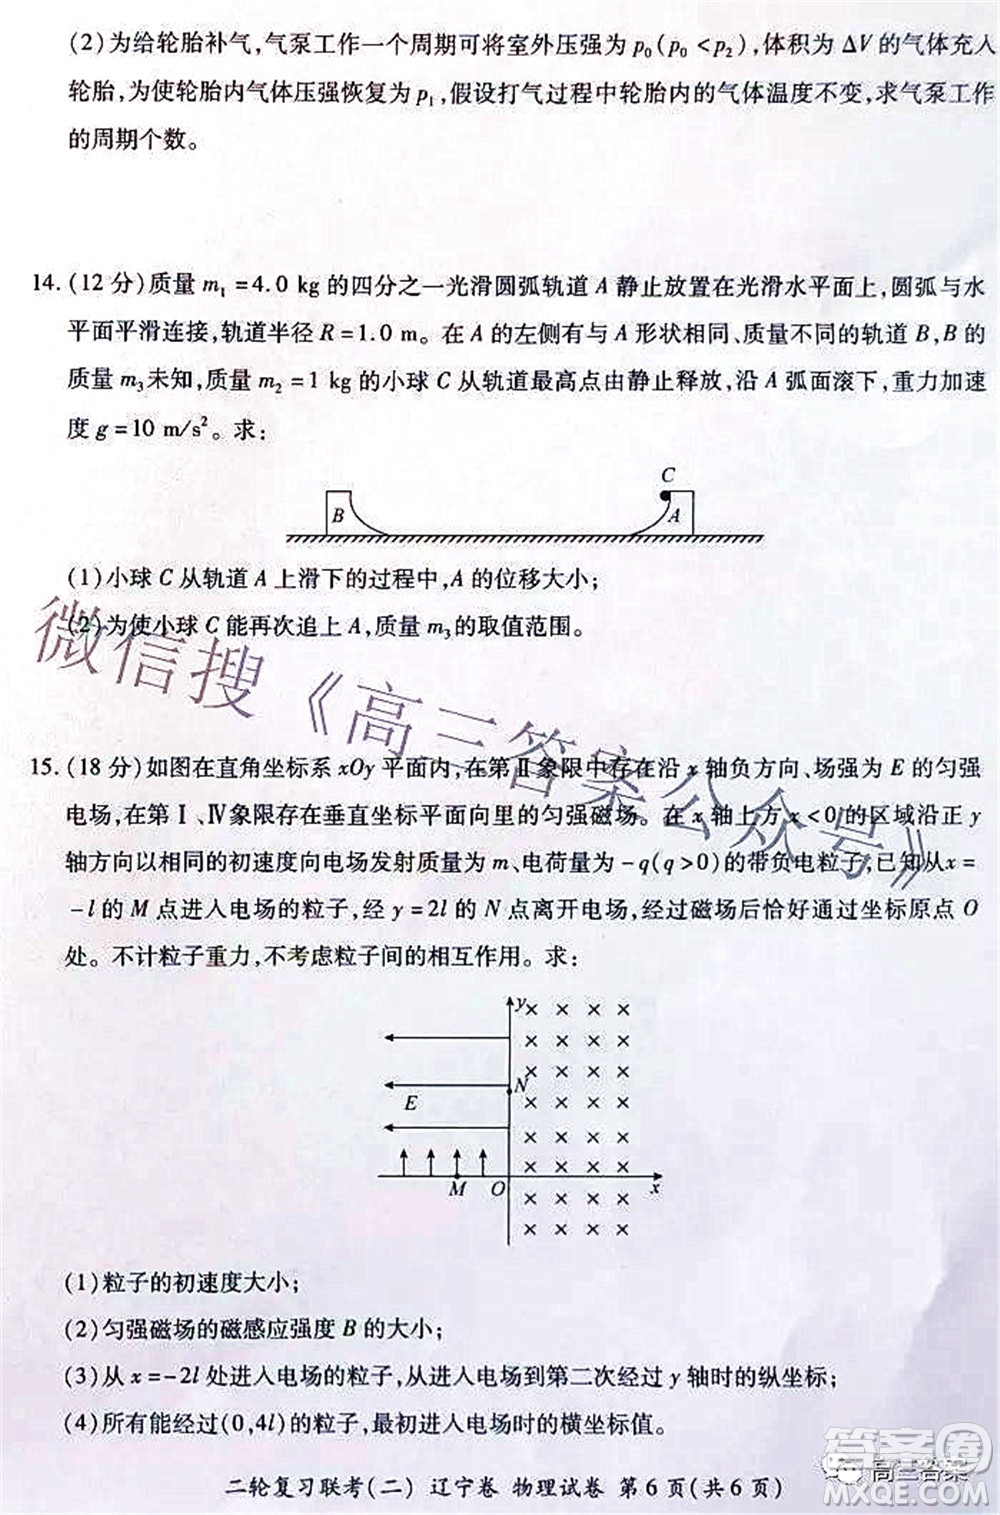 (2)为给轮胎补气,气泵工作一个周期可将室外压强为p₀(p₀<p₂),体积为ΔV的气体充入
轮胎,为使轮胎内气体压强恢复为p₁,假设打气过程中轮胎内的气体温度不变,求气泵工作
的周期个数。
14.(12分)质量m₁=4.0 kg的四分之一光滑圆弧轨道A静止放置在光滑水平面上,圆弧与水
平面平滑连接,轨道半径R=1.0 m。在A的左侧有与A形状相同、质量不同的轨道B,B的
质量m₃未知,质量m₂=1 kg的小球C从轨道最高点由静止释放,沿A弧面滚下,重力加速
度g=10 m/s²。求:
C
B
A
(1)小球C从轨道A上滑下的过程中,A的位移大小;
(2)为使小球C能再次追上A,质量m₃的取值范围。
微信搜《高三答案公众号》
15.(18分)如图在直角坐标系xOy平面内,在第Ⅱ象限中存在沿x轴负方向、场强为E的匀强
电场,在第Ⅰ、Ⅳ象限存在垂直坐标平面向里的匀强磁场。在x轴上方x<0的区域沿正y
轴方向以相同的初速度向电场发射质量为m、电荷量为-q(q>0)的带负电粒子,已知从x=
-l的M点进入电场的粒子,经y=2l的N点离开电场,经过磁场后恰好通过坐标原点O
处。不计粒子重力,不考虑粒子间的相互作用。求:
y
× × × ×
× × × ×
× × × ×
N
E
× × × ×
× × × ×
× × × ×
M
O
x
× × × ×
× × × ×
(1)粒子的初速度大小;
(2)匀强磁场的磁感应强度B的大小;
(3)从x=-2l处进入电场的粒子,从进入电场到第二次经过y轴时的纵坐标;
(4)所有能经过(0,4l)的粒子,最初进入电场时的横坐标值。
答案圈
高三答案
MXQE.COM
二轮复习联考(二) 辽宁卷 物理试卷 第6页(共6页)